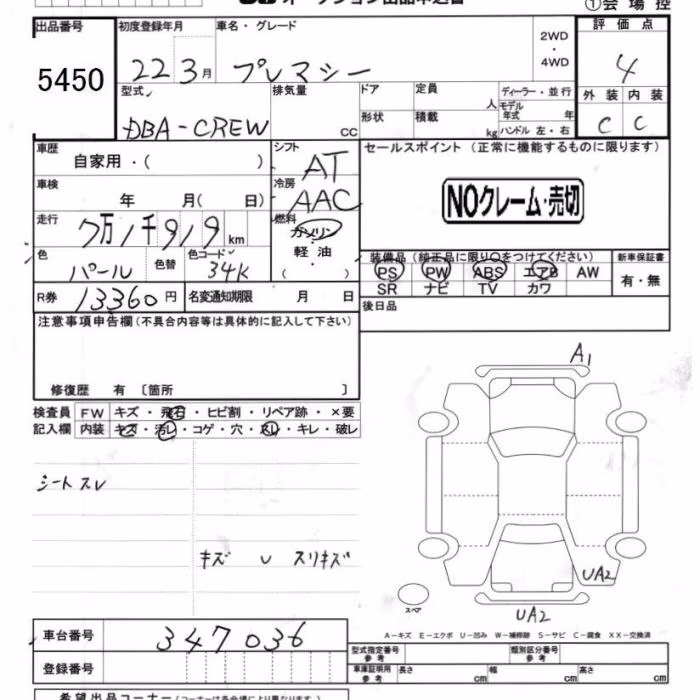 オークション出品申込書 ①会場控
出品番号 初度登録年月 車名・グレード 2WD・4WD 評価点
5450 22 3月 プレマシー 4
型式 排気量 ドア 定員 人 ディーラー・並行 外装 内装
DBA-CREW cc 形状 積載 kg モデル年式 年 ハンドル 左・右 C C
車歴 自家用・( ) シフト AT セールスポイント (正常に機能するものに限ります)
車検 年 月( 日) 冷房 AAC NOクレーム・売切
走行 7万1千919km 燃料 ガソリン・軽油・( )
色 パール 色替 色コード 34K 装備品 (純正品に限り○をつけてください) 新車保証書
PS PW ABS エアB AW 有・無
SR ナビ TV カワ
R券 13360円 名変通知期限 月 日 後日品
注意事項申告欄(不具合内容等は具体的に記入して下さい)
修復歴 有 〔箇所 〕
検査員 FW キズ・飛石・ヒビ割・リペア跡・×要
記入欄 内装 キズ・汚レ・コゲ・穴・スレ・キレ・破レ
シートスレ
キズ U スリキズ
A1
UA2
UA2
スペア
A－キズ E－エクボ U－凹み W－補修跡 S－サビ C－腐食 XX－交換済
車台番号 347036 型式指定番号 参考 類別区分番号 参考
登録番号 車庫証明用 参考 長さ cm 幅 cm 高さ cm
希望出品コーナー (コーナーは各会場により異なります)